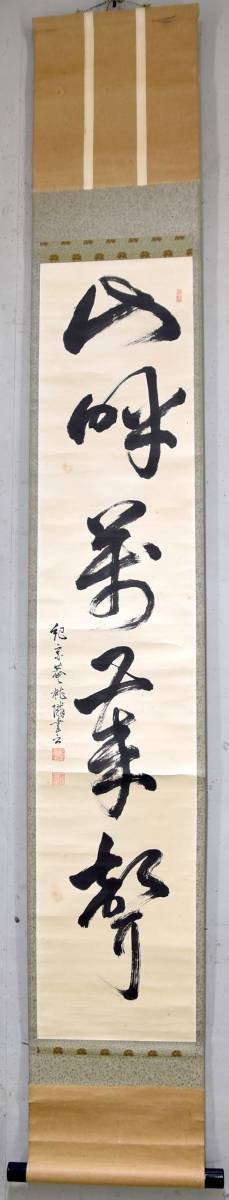 山呼萬歳聲
紀宗菴桃隣書之